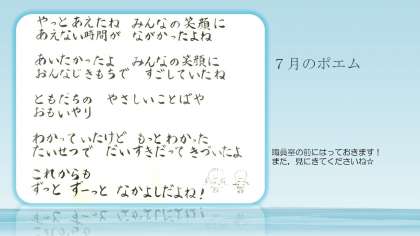 やっとあえたね　みんなの笑顔に
あえない時間が　ながかったよね
あいたかったよ　みんなの笑顔に
おんなじきもちで　すごしていたね
ともだちの　やさしいことばや
おもいやり
わかっていたけど　もっとわかった
たいせつで　だいすきだって　きづいたよ
これからも
ずっと　ずーっと　なかよしだよね！
７月のポエム
職員室の前にはっておきます！
また，見にきてくださいね☆